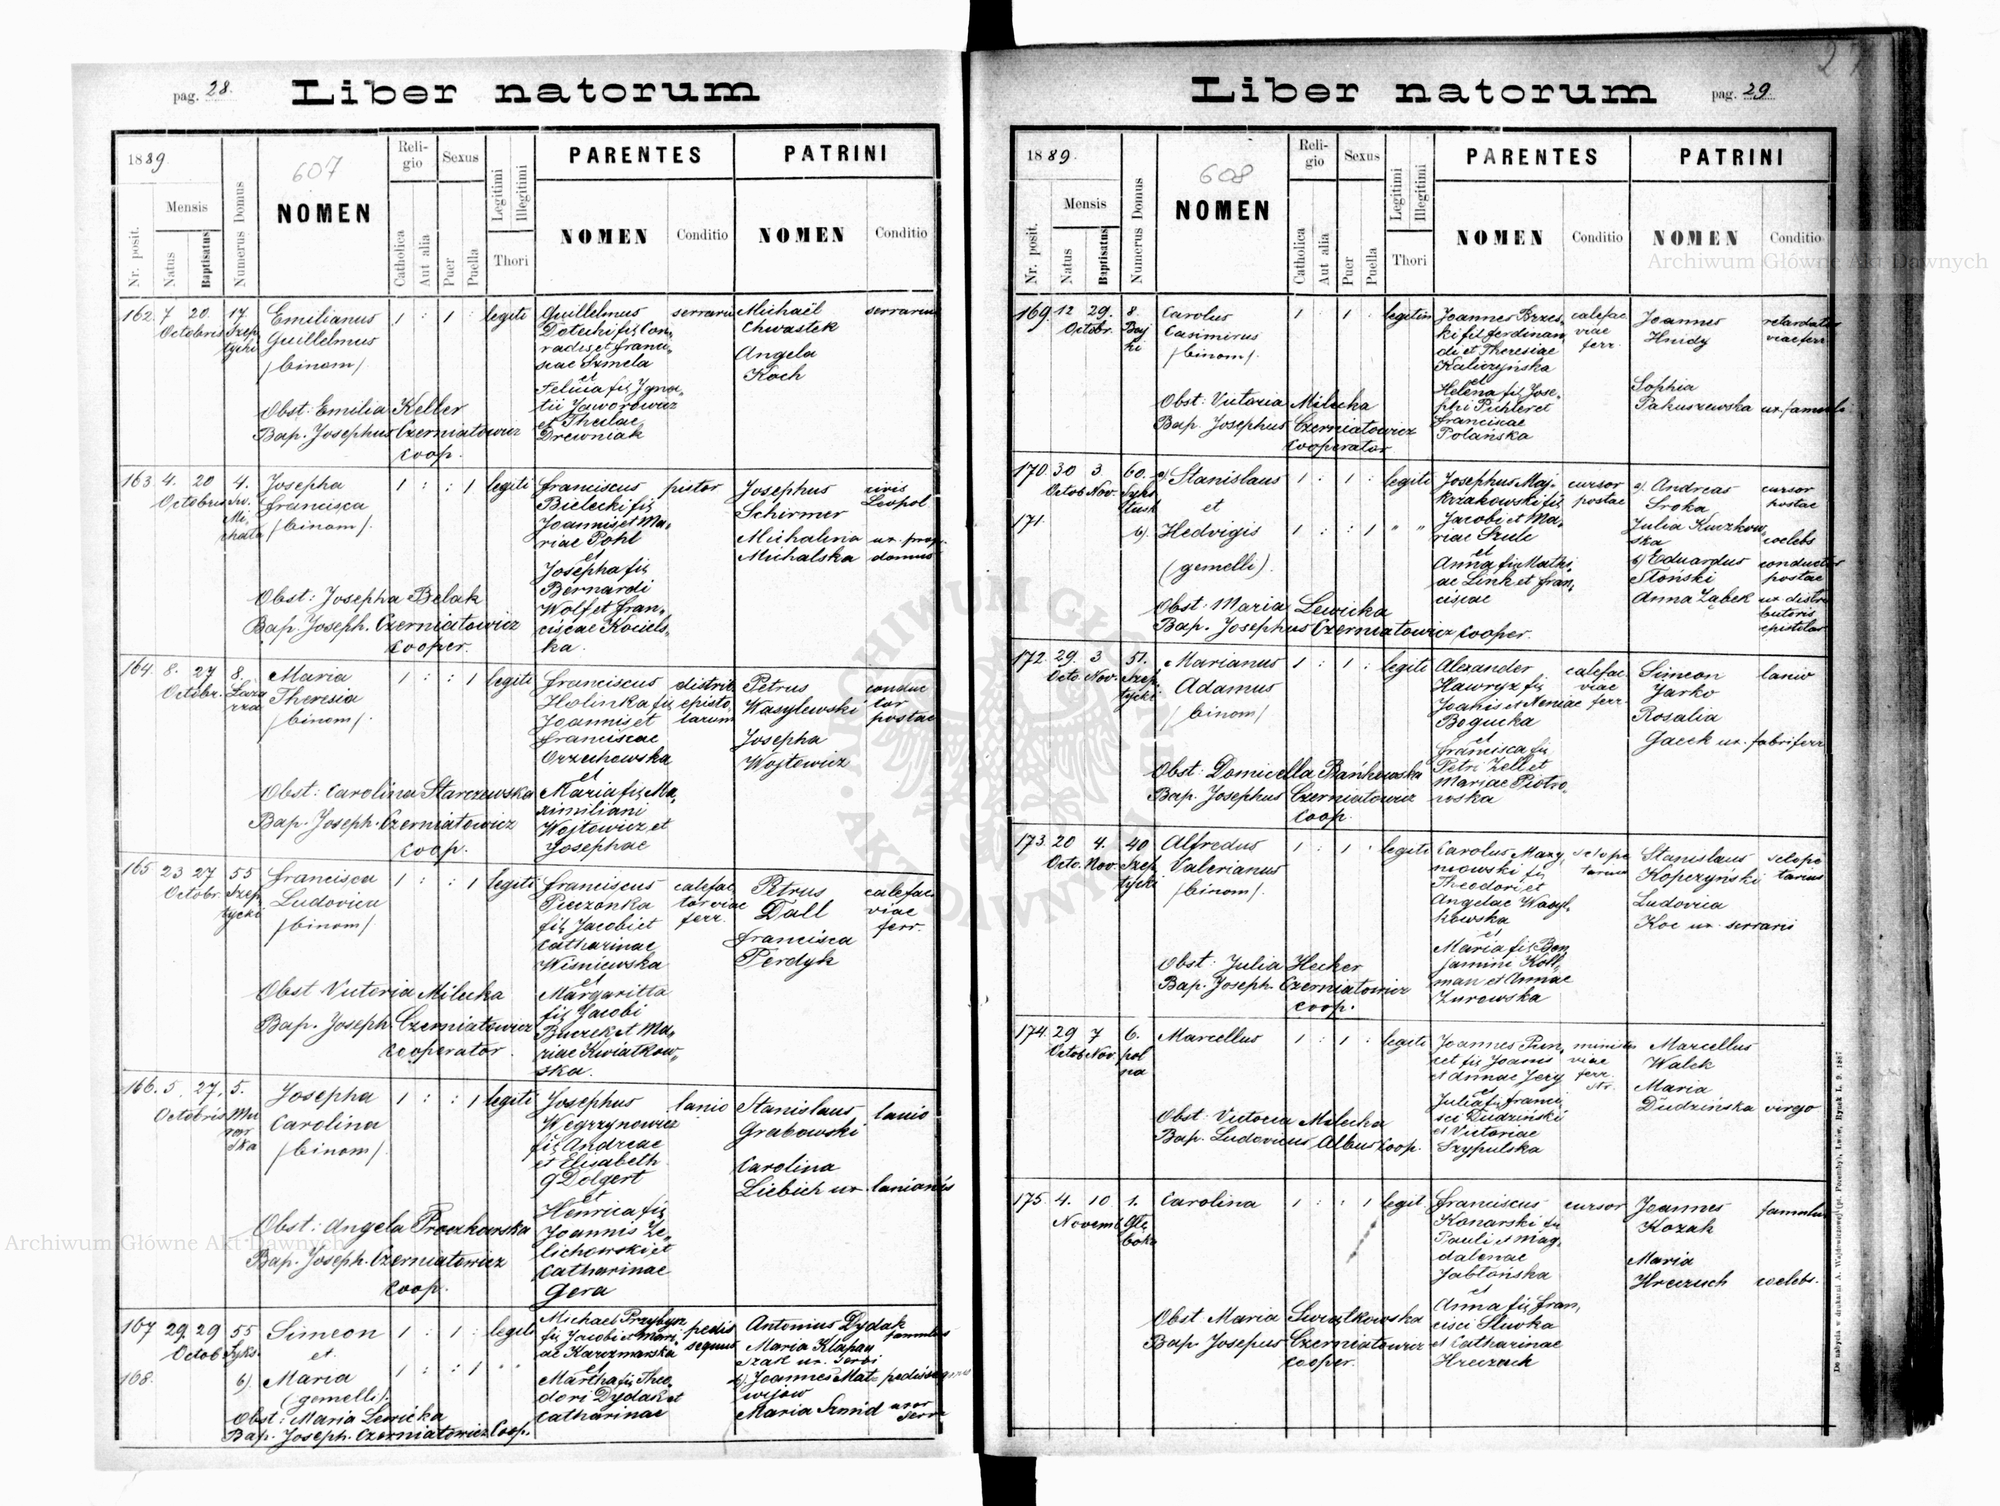 pag. 28.
Liber natorum
1889.
607
Nr. posit.
Mensis
Natus
Baptisatus
Numerus Domus
NOMEN
Religio
Catholica
Aut alia
Sexus
Puer
Puella
Legitimi
Illegitimi
Thori
PARENTES
NOMEN
Conditio
PATRINI
NOMEN
Conditio
162. 7 20. 17.
Octobris Szep
tycki
Emilianus
Guillelmus
/binom/.
1 : 1 : legiti
Guillelmus
Conradis et Franci
sciae Szmela
et
Felicia fil. Igna
tii Jaworowicz
et Theclae
Drewniak
Michaël
Chwastek
Angela
Koch
Obst: Emilia Keller
Bap. Josephus Czerniatowicz
coop.
163. 4. 20 4.
Octobris Sw.
Mi
chała
Josepha
Francisca
/binom/.
1 : : 1 legiti
Franciscus
Bielecki fil.
Joannis et Ma
riae Pohl
et
Josepha fil.
Bernardi
Wolf et Fran
ciscae Kociels
ka.
pistor
Josephus
Schirmer
civis
Leopol.
Michalina
Michalska
ux. prop.
domus
Obst: Josepha Belak
Bap. Joseph. Czerniatowicz
cooper.
164. 8. 27 8.
Octobr. Łaza
rza
Maria
Theresia
/binom/.
1 : : 1 legiti
Franciscus
Holinka fil.
Joannis et
Franciscae
Orzechowska
et
Maria fil. Ma
ximiliani
Wojtowicz et
Josephae
distrib
episto
larum
Petrus
Wasylewski
Josepha
Wojtowicz
conduc
tor
postae
Obst: Carolina Starczewska
Bap. Joseph. Czerniatowicz
coop.
165 23 27 55
Octobr. Szep
tycki
Francisca
Ludovica
/binom/
1 : : 1 legiti
Franciscus
Pieczonka
fil. Jacobi et
Catharinae
Wiśniewska
et
Margaritta
fil. Jacobi
Buczek et Ma
riae Kwiatkow
ska.
calefac
tor viae
ferr.
Petrus
Dall
Francisca
Perdyk
calefac.
viae
ferr.
Obst Victoria Milecka
Bap. Joseph. Czerniatowicz
cooperator.
166. 5. 27. 5.
Octobris
Josepha
Carolina
/binom/
1 : : 1 legiti
Josephus
Węgrzynowicz
fil. Andreae
et Elisabeth
Dolgert
et
Henrica fil.
Joannis Ze
lichowski et
Catharinae
Gera
lanio
Stanislaus
Grabowski
Carolina
Liebich ux. lanionis
lanio
Obst: AngelaProczkowska
Bap. Joseph. Czerniatowicz
coop.
167 29. 29 55
Octob. Syks.
Simeon
et
168.
b) Maria
(gemelli).
1 : 1 : legiti
1 : : 1 " "
Michael
fil. Jacobi et Mari
ae Karczmarska
et
Martha fil. Theo
dori Dydak et
Catharinae
pedis
sequus
Antonius Dydak
famulus
Maria
b). Joannes
Maria Szmid
Obst: Maria Lewicka
Bap. Joseph. Czerniatowicz Coop.
pag. 29.
Liber natorum
1889.
608
Nr. posit.
Mensis
Natus
Baptisatus
Numerus Domus
NOMEN
Religio
Catholica
Aut alia
Sexus
Puer
Puella
Legitimi
Illegitimi
Thori
PARENTES
NOMEN
Conditio
PATRINI
NOMEN
Conditio
169. 12 29. 8.
Octobr.
Carolus
Casimirus
/binom/.
1 : 1 : legitim
Joannes Brzes
ki fil. Ferdinan
di et Theresiae
Kaliczyńska
et
Helena fil. Jose
phi Pichler et
Franciscae
Polańska
calefac
viae
ferr.
Joannes
Hnidy
Sophia
Pakuszewska ux. famuli
retardator
viae ferr.
Obst: Victoria Milecka
Bap. Josephus Czerniatowicz
cooperator
170. 30 3. 60.
Octob Nov.
a) Stanislaus
et
171.
b). Hedvigis
(gemelli).
1 : 1 : legiti
1 : : 1 " "
Josephus Maj
krzakowski fil.
Jacobi et Ma
riae Szulc
et
Anna fil. Mathi
ae Link et Fran
ciscae
cursor
postae
a). Andreas
Sroka
cursor
postae
Julia Kuczkow
ska
coelebs
b) Eduardus
Słoński
conductor
postae
Anna Ząbek ux. distri
butoris
epistolar.
Obst: Maria Lewicka
Bap. Josephus Czerniatowicz cooper.
172. 29. 3 51.
Octo. Nov. Szep
tycki
Marianus
Adamus
/binom/
1 : 1 : legiti
Alexander
Hawryz fil.
Bogucka
et
Francisca fil.
Petri Zell et
Mariae Piotro
wska
calefac.
viae
ferr.
Simeon
Jarko
Rosalia
Gacek ux. fabri ferr.
lanio
Obst: Domicella Bańkowska
Bap. Josephus Czerniatowicz
coop.
173. 20 4. 40
Octo. Nov Szep
tycki
Alfredus
Valerianus
/binom/.
1 : 1 : legiti
Carolus Mazy
nowski fil.
Theodori et
Angelae Wasyl
kowska
et
Maria fil. Ben
jamini Koll
man et Annae
Żurowska
sclope
tarius
Stanislaus
Kopczyński
Ludovica
Koc ux. serrarii
sclope
tarius
Obst: Julia Hecker
Bap. Joseph. Czerniatowicz
coop.
174. 29 7 6.
Octob Nov pol
na
Marcellus
1 : 1 : legiti
Joannes Pun
cet fil. Joanis
et Annae Jery
et
Julia fil. Franci
sci Dudziński
et Victoriae
Szypulska
minister
viae
ferr.
Marcellus
Walek
Maria
Dudzińska virgo
Obst: Victoria Milecka
Bap. Ludovicus Albus Coop.
175. 4. 10 1.
Novemb Głę
boka
Carolina
1 : : 1 legit.
Franciscus
Konarski fil.
Pauli et Mag
dalenae
Jabłońska
et
Anna fil. Fran
cisci Śliwka
et Catharinae
Hreczuch
cursor
Joannes
Kozak
Maria
Hreczuch coelebs.
famulus
Obst: Maria Swiątkowska
Bap. Josepus Czerniatowicz
cooper.
Archiwum Główne Akt Dawnych
Archiwum Główne Akt Dawnych
ARCHIWUM GŁÓWNE AKT DAWNYCH